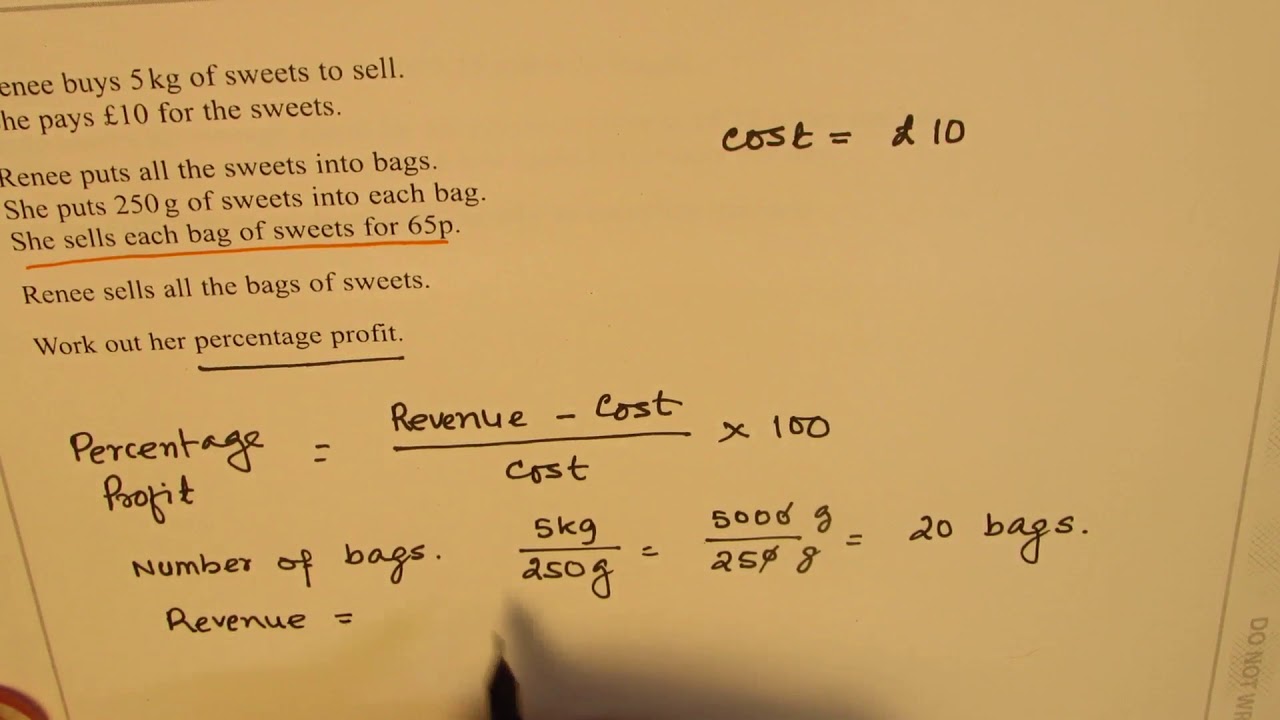 enee buys 5kg of sweets to sell.
he pays £10 for the sweets.
Renee puts all the sweets into bags.
She puts 250g of sweets into each bag.
She sells each bag of sweets for 65p.
Renee sells all the bags of sweets.
Work out her percentage profit.
cost = £10
Percentage Profit = Revenue - Cost / cost × 100
Number of bags. 5kg / 250g = 5000 g / 250 g = 20 bags.
Revenue =
DO NOT WR